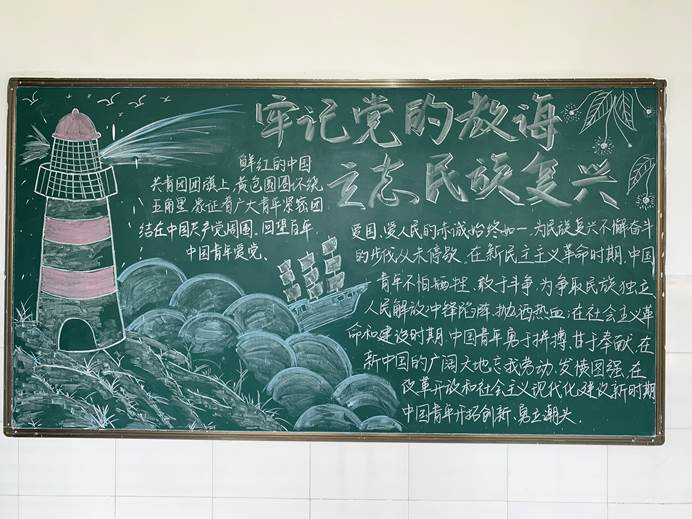 牢记党的教诲
立志民族复兴
鲜红的中国
共青团团旗上,黄色圆圈环绕
五角星,象征着广大青年紧密团
结在中国共产党周围。回望百年,
中国青年爱党、
爱国、爱人民的赤诚始终如一,为民族复兴不懈奋斗
的步伐从未停歇。在新民主主义革命时期,中国
青年不怕牺牲、敢于斗争,为争取民族独立、
人民解放冲锋陷阵、抛洒热血;在社会主义革
命和建设时期,中国青年勇于拼搏、甘于奉献,在
新中国的广阔天地忘我劳动、发愤图强;在
改革开放和社会主义现代化建设新时期
中国青年开拓创新、勇立潮头.